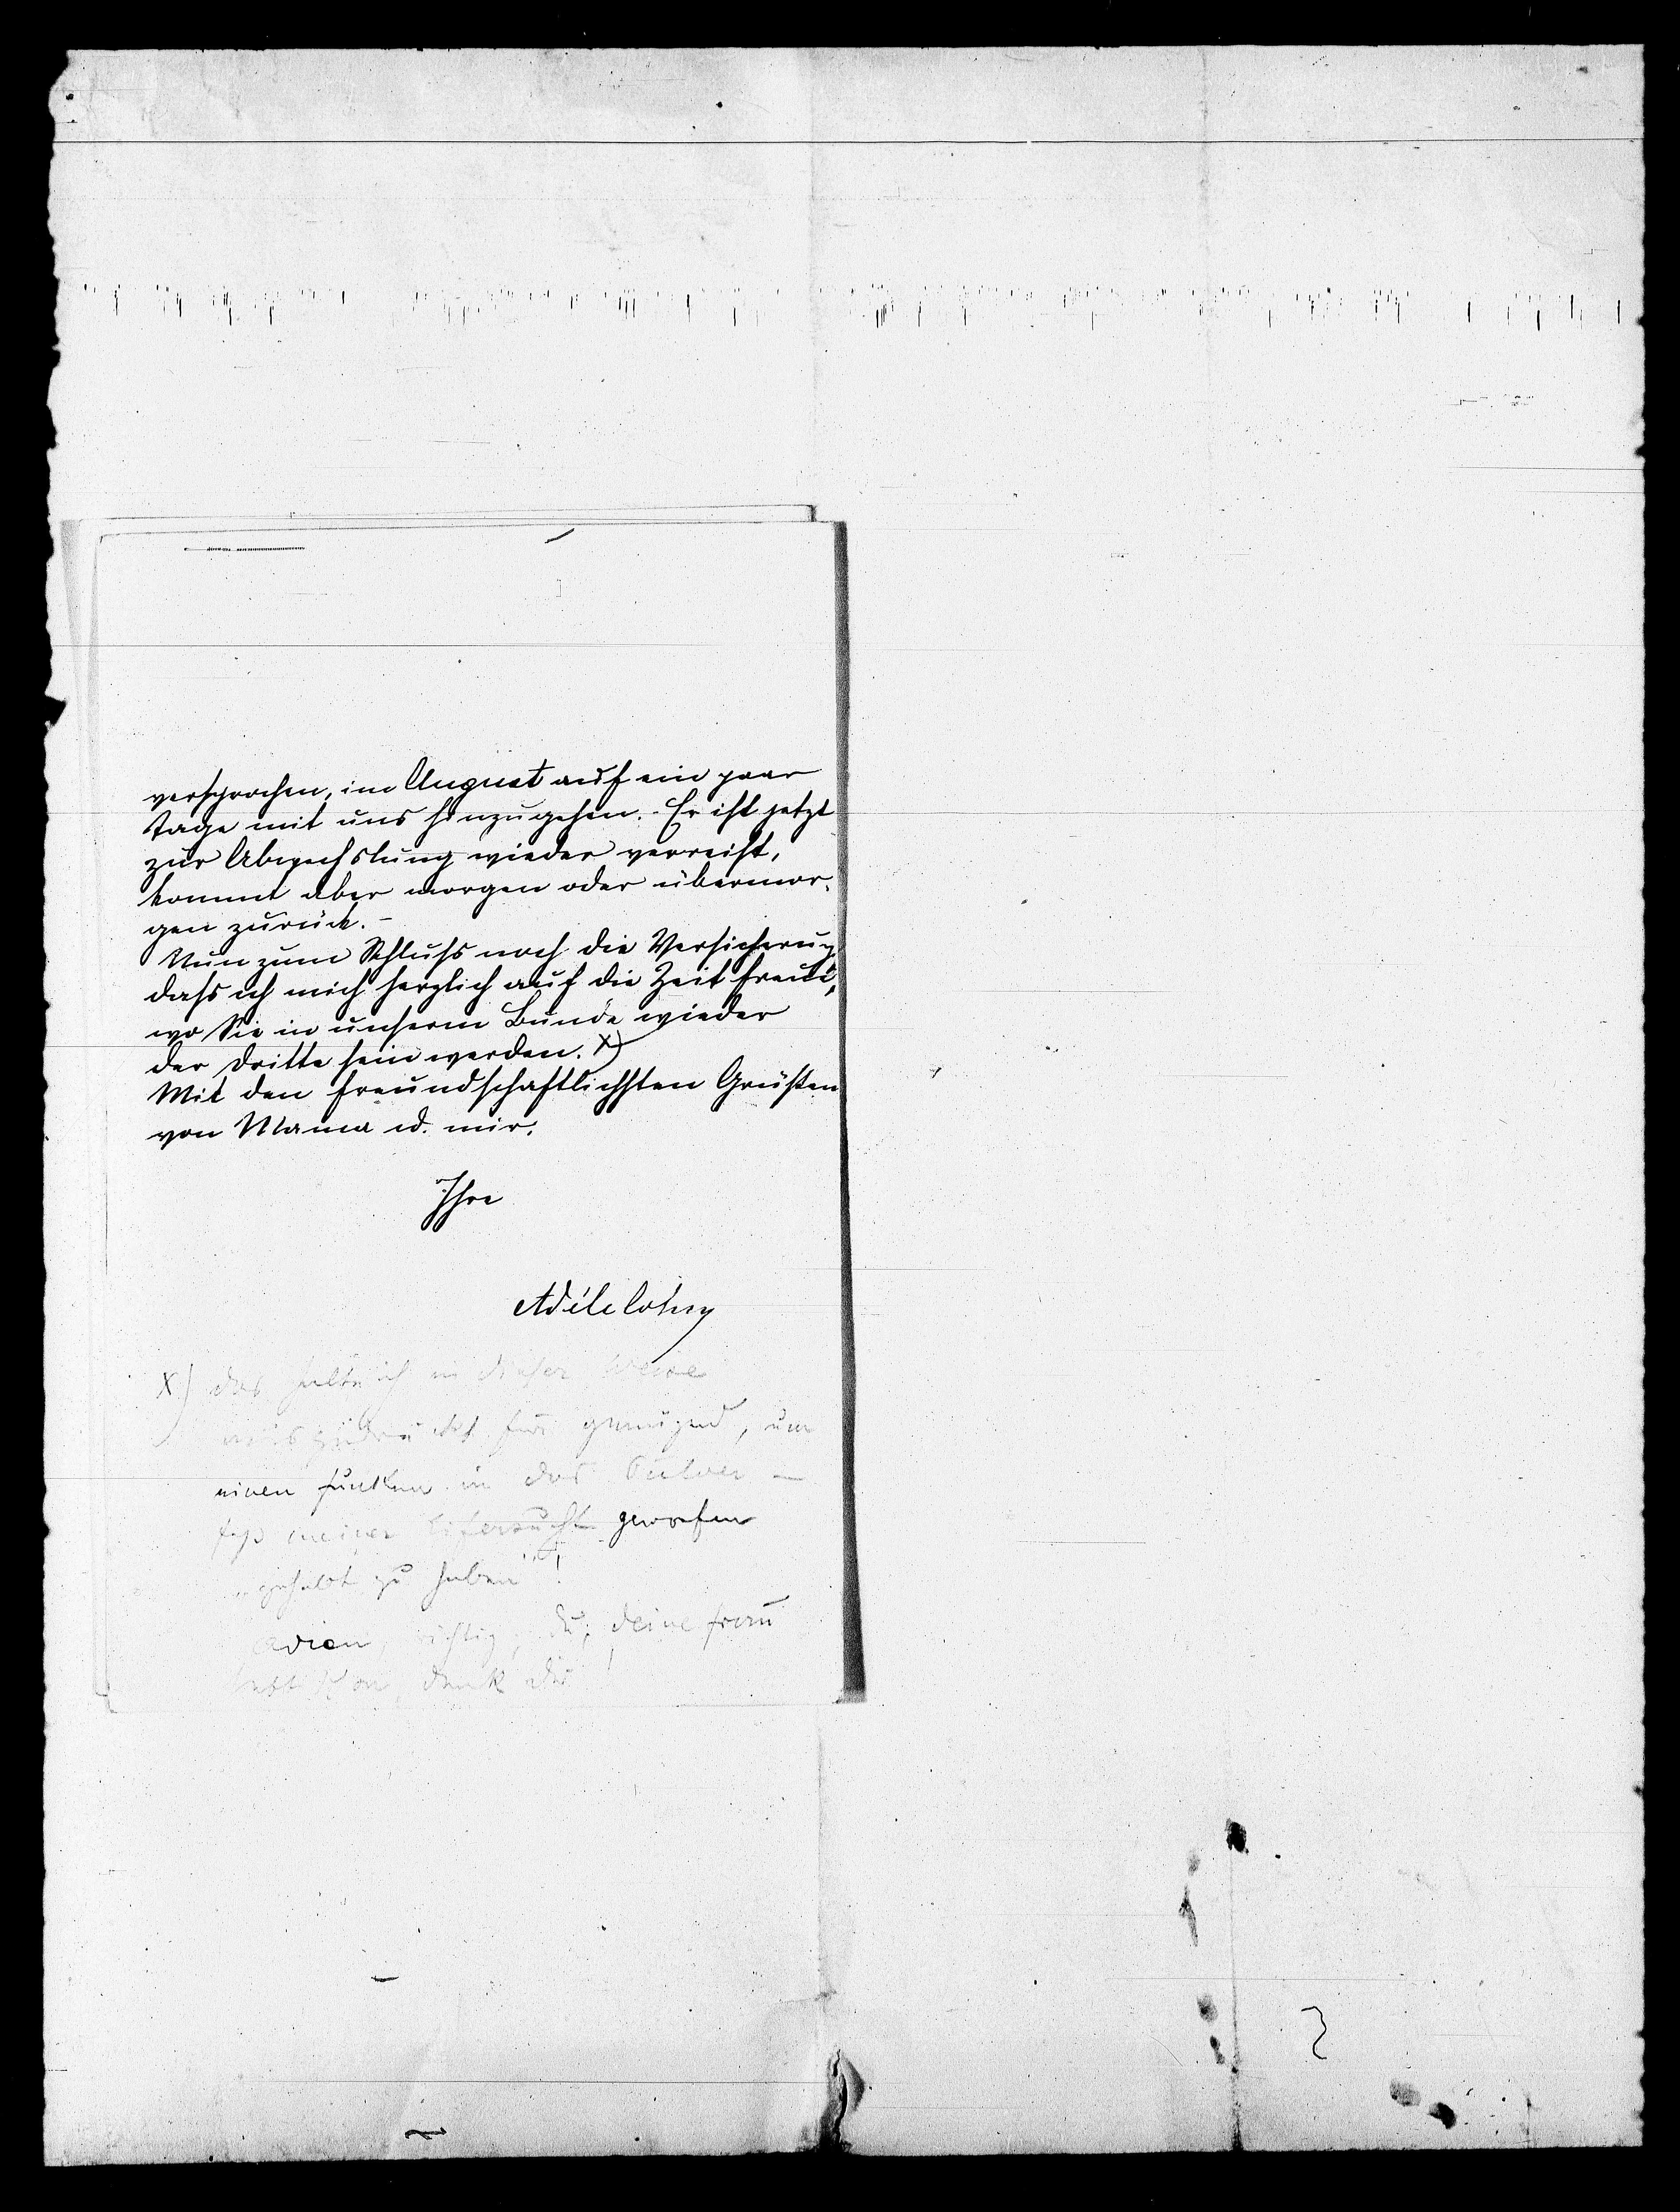 versprochen, im August auf ein paar
Tage mit uns hinzugehen. Er ist jetzt
zur Abwechslung wieder verreist,
kommt aber morgen oder übermor-
gen zurück. –
Nun zum Schluss noch die Versicherung,
dass ich mich herzlich auf die Zeit freue,
wo Sie in unserm Bunde wieder
der Dritte sein werden. X)
Mit den freundschaftlichsten Grüßen
von Mama u. mir.
Ihre
Adèle
X) das halte ich in dieser Weise
ausgedrückt für genügend, um
einen Funken in das Pulver –
faß meiner Eifersucht geworfen
„gehabt zu haben“!
richtig, Du, deine Frau